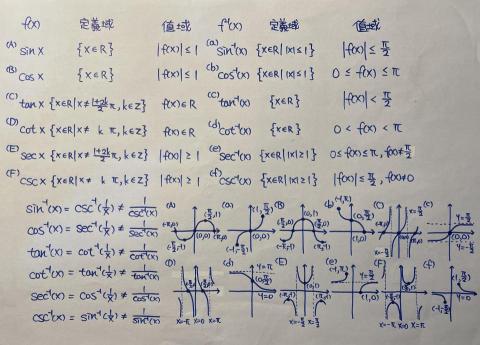 f(x) 定義域 值域 f⁻¹(x) 定義域 值域
(A) sin x {x∈R} |f(x)| ≤ 1 (a) sin⁻¹(x) {x∈R| |x| ≤ 1} |f(x)| ≤ π/2
(B) cos x {x∈R} |f(x)| ≤ 1 (b) cos⁻¹(x) {x∈R| |x| ≤ 1} 0 ≤ f(x) ≤ π
(C) tan x {x∈R|x≠ (1+2k)/2 π, k∈Z} f(x)∈R (c) tan⁻¹(x) {x∈R} |f(x)| < π/2
(D) cot x {x∈R|x≠ k π, k∈Z} f(x)∈R (d) cot⁻¹(x) {x∈R} 0 < f(x) < π
(E) sec x {x∈R|x≠ (1+2k)/2 π, k∈Z} |f(x)| ≥ 1 (e) sec⁻¹(x) {x∈R| |x| ≥ 1} 0 ≤ f(x) ≤ π, f(x)≠π/2
(F) csc x {x∈R|x≠ k π, k∈Z} |f(x)| ≥ 1 (f) csc⁻¹(x) {x∈R| |x| ≥ 1} |f(x)| ≤ π/2, f(x)≠0
sin⁻¹(x) = csc⁻¹(1/x) ≠ 1/csc⁻¹(x)
cos⁻¹(x) = sec⁻¹(1/x) ≠ 1/sec⁻¹(x)
tan⁻¹(x) = cot⁻¹(1/x) ≠ 1/cot⁻¹(x)
cot⁻¹(x) = tan⁻¹(1/x) ≠ 1/tan⁻¹(x)
sec⁻¹(x) = cos⁻¹(1/x) ≠ 1/cos⁻¹(x)
csc⁻¹(x) = sin⁻¹(1/x) ≠ 1/sin⁻¹(x)
(A) (π/2, 1) (0,0) (-π/2, -1)
(a) (1, π/2) (0,0) (-1, -π/2)
(B) (0,1)
(b) (-1, π) (1,0)
(C) x=π/2
(c) y=π/2 (0,0) y=-π/2
(D) x=-π x=0 x=π
(d) y=π y=0
(E) (0,1) x=-π/2 x=π/2
(e) (-1,π) y=π/2 (1,0)
(F) x=-π x=0 x=π
(f) (1,π/2) (-1,-π/2) y=0